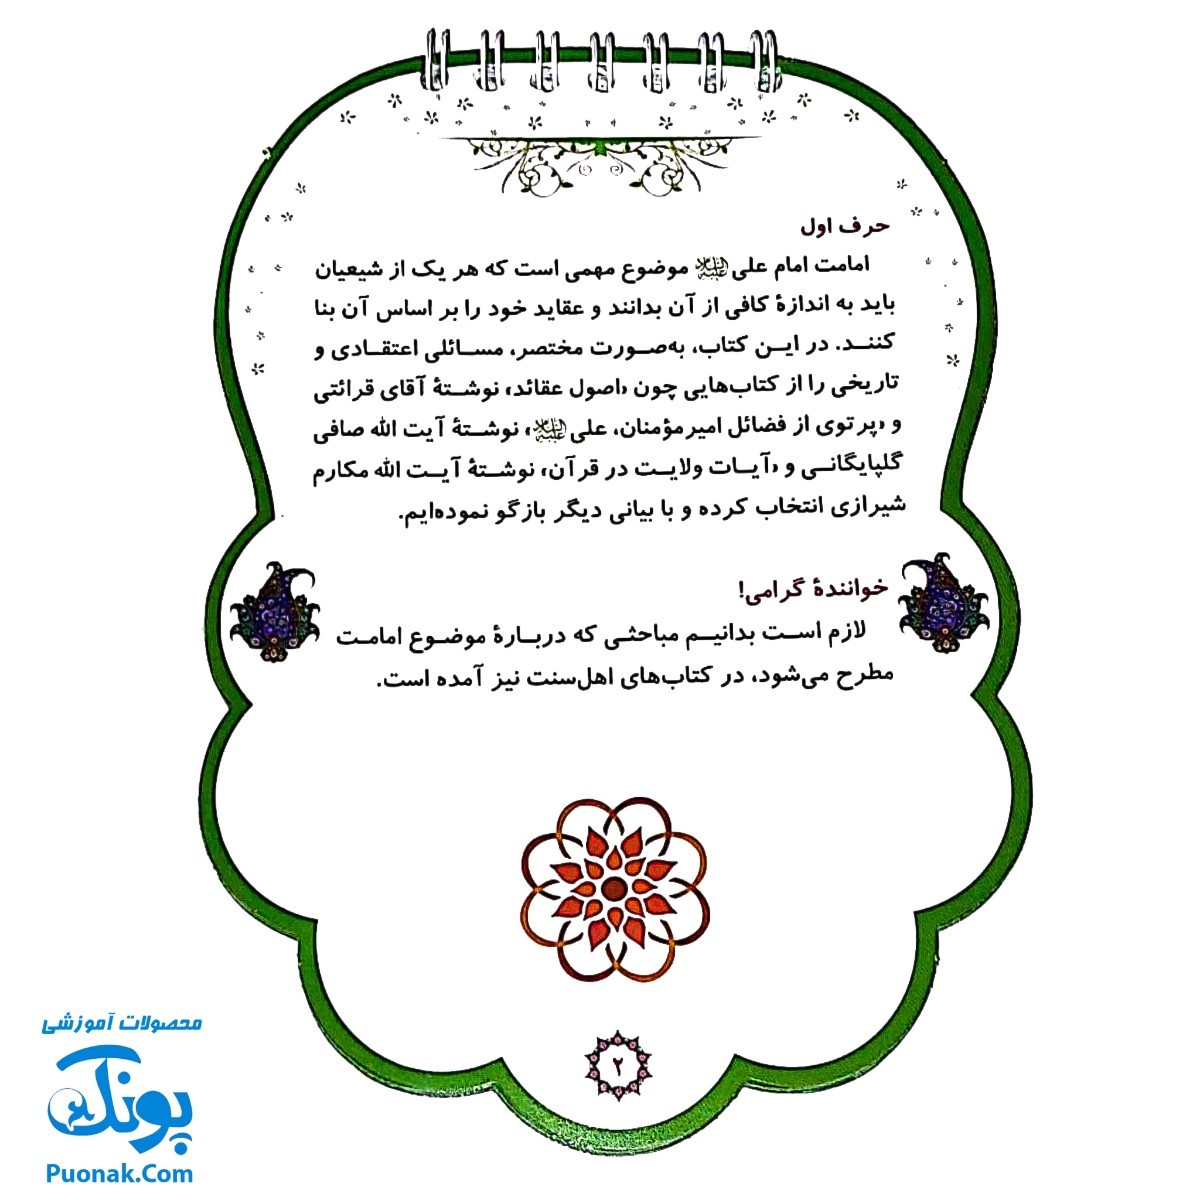 حرف اول
امامت امام علی علیه‌السلام موضوع مهمی است که هر یک از شیعیان
باید به اندازهٔ کافی از آن بدانند و عقاید خود را بر اساس آن بنا
کننـد. در ایـن کتاب، به‌صـورت مختصر، مسـائلی اعتقـادی و
تاریخی را از کتاب‌هایی چون «اصول عقائد» نوشـتهٔ آقای قرائتی
و «پرتوی از فضائل امیرمؤمنان، علی علیه‌السلام» نوشـتهٔ آیت الله صافی
گلپایگانـی و «آیـات ولایـت در قرآن» نوشـتهٔ آیـت الله مکارم
شیرازی انتخاب کرده و با بیانی دیگر بازگو نموده‌ایم.
خوانندهٔ گرامی!
لازم اسـت بدانیـم مباحثـی که دربـارهٔ موضـوع امامـت
مطرح می‌شود، در کتاب‌های اهل‌سنت نیز آمده است.
۲
محصولات آموزشی
پونک
Puonak.Com